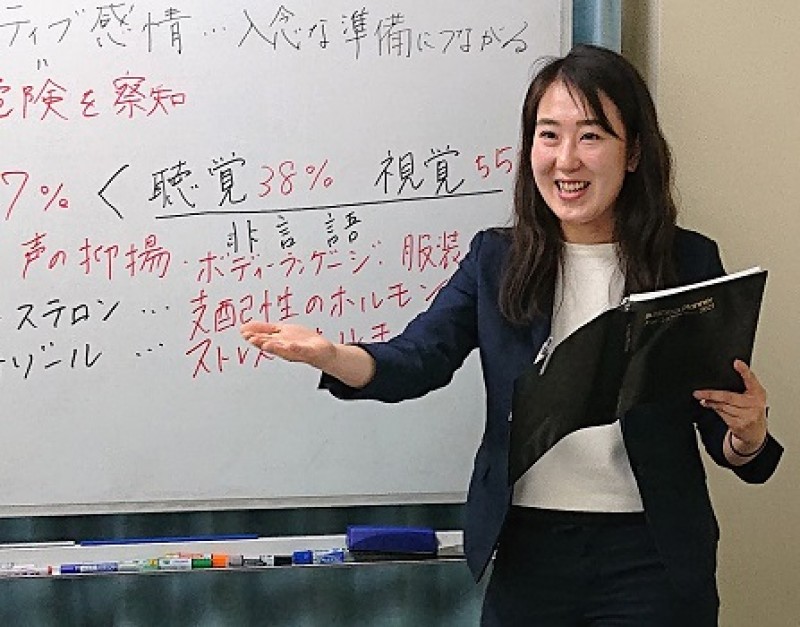 ティブ感情…入念な準備につながる
〃
危険を察知
7%く聴覚38% 視覚55
非言語
声の抑揚・ボディーランゲージ・服装
ステロン…支配性のホルモン
ゾール…ストレス ルモ
Business Planner
2021